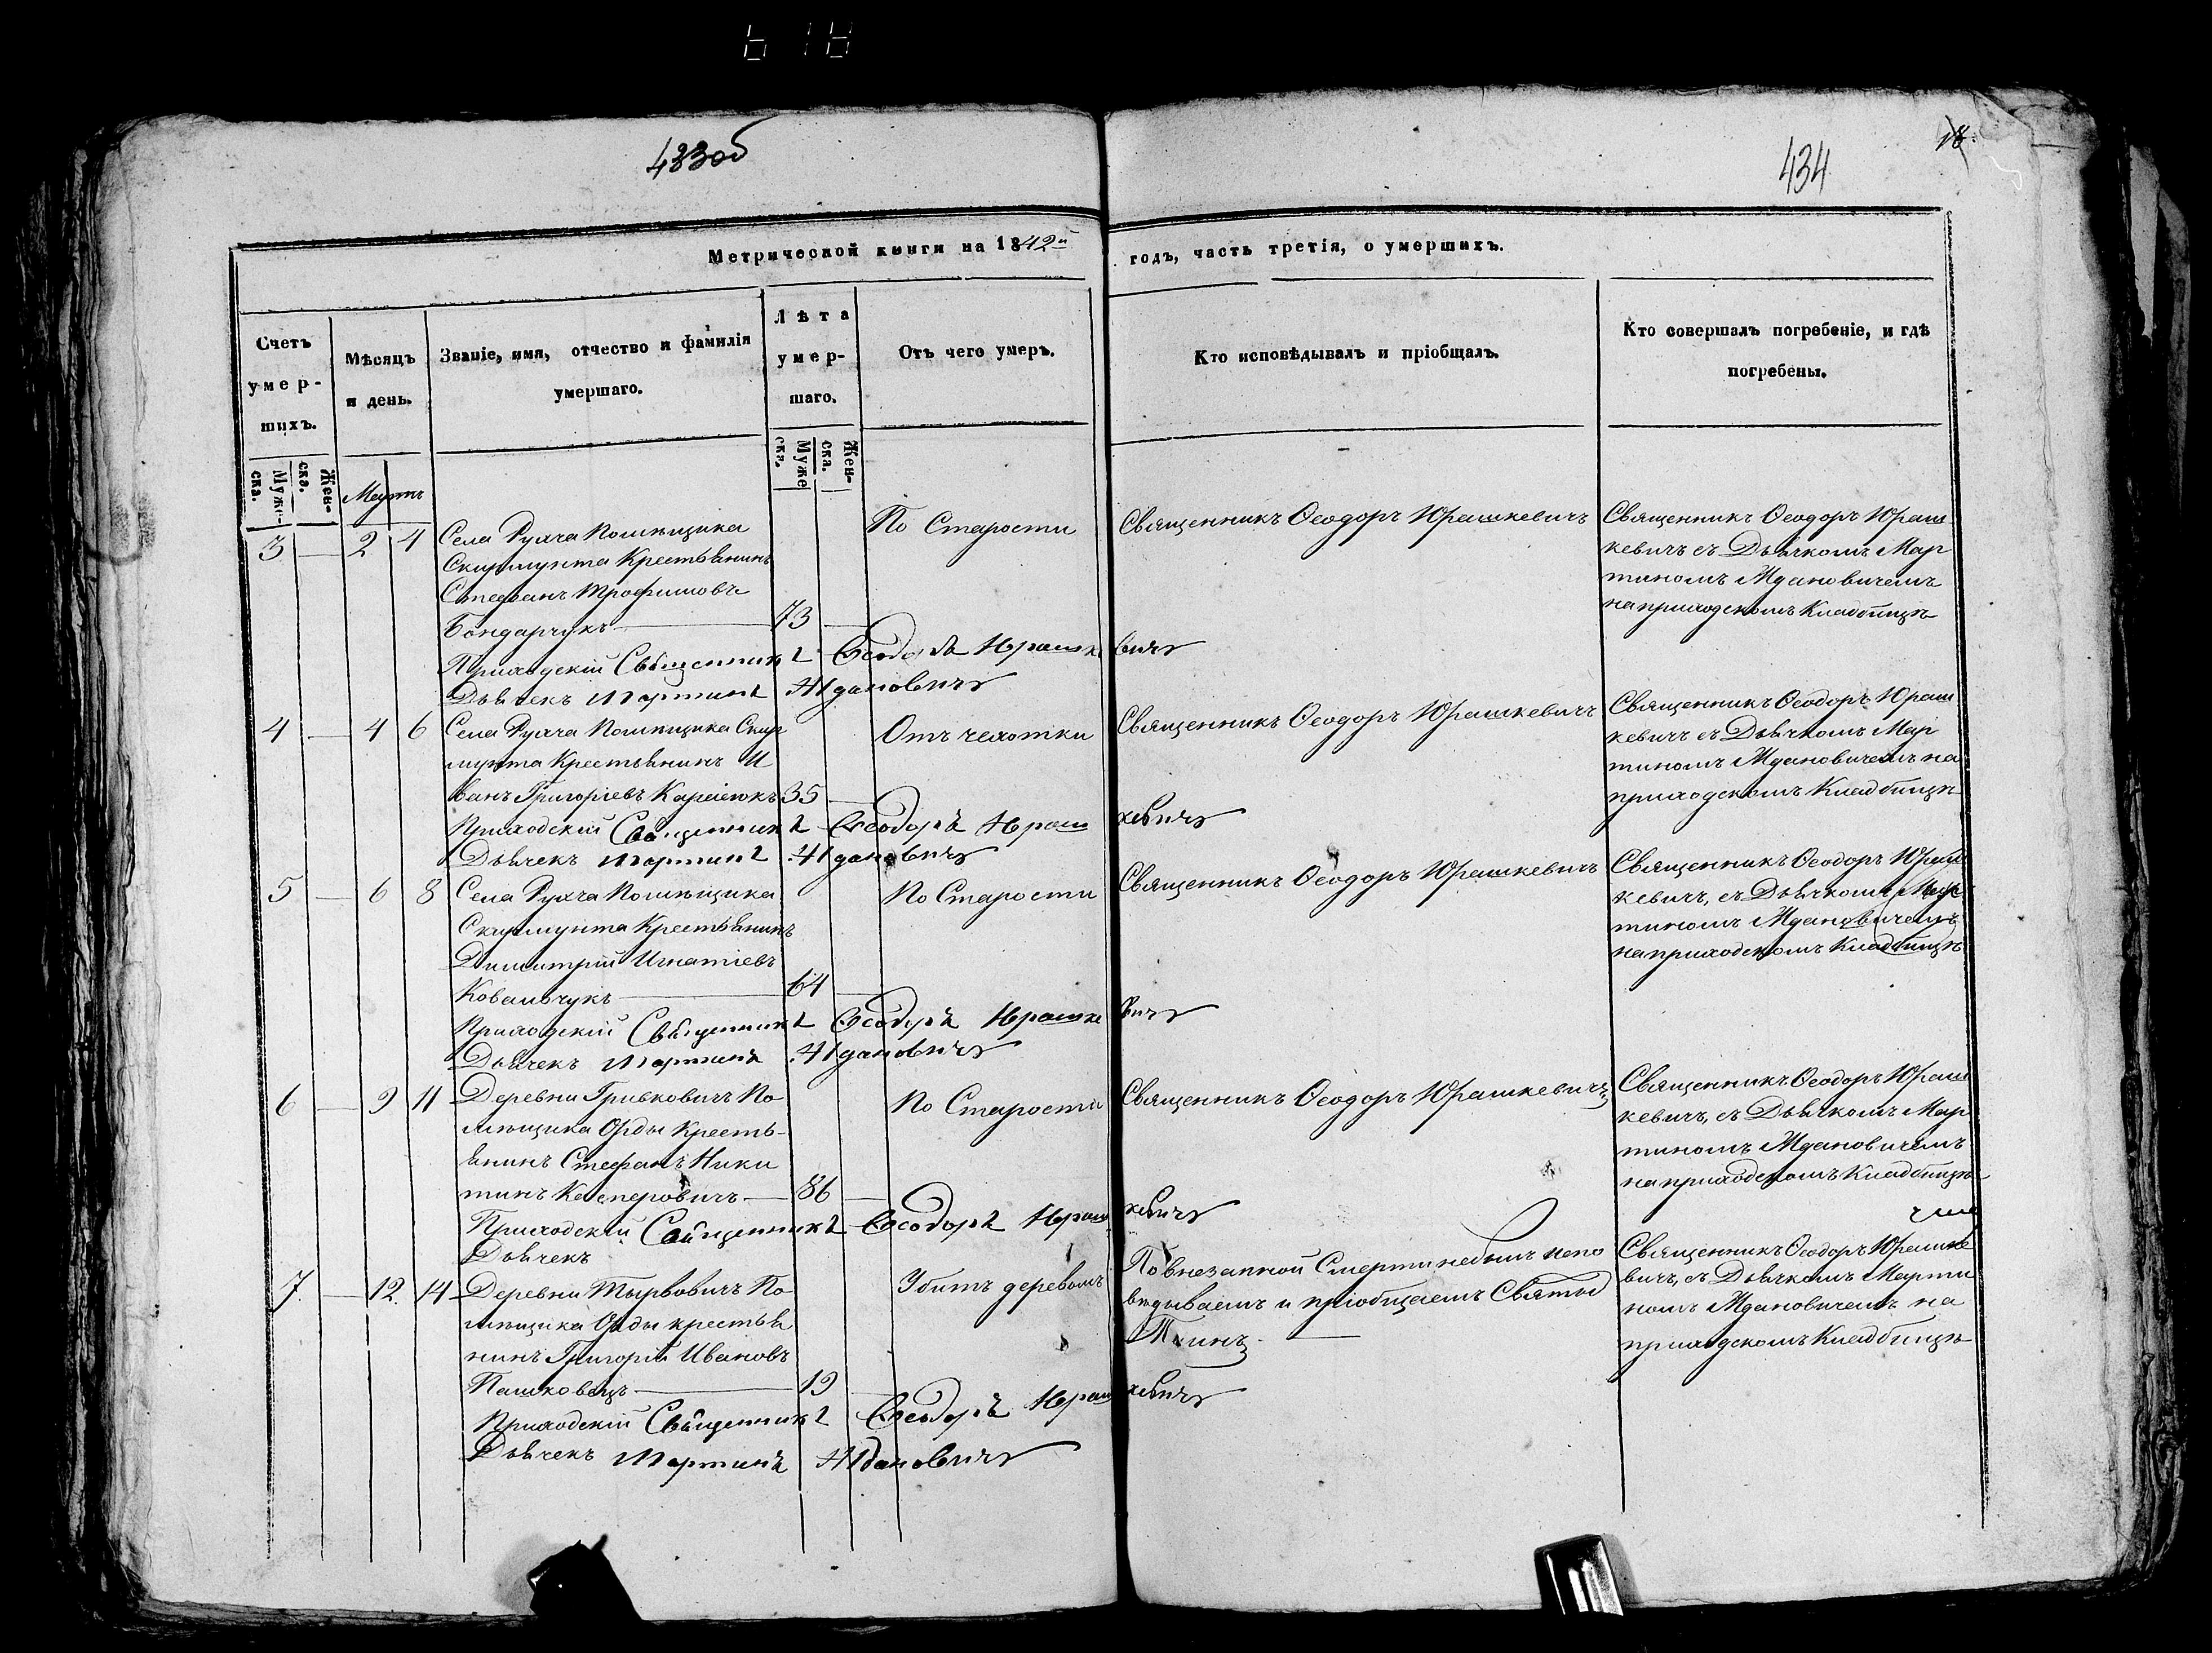 433об
434
18.
Метрической книги на 1842й годъ, часть третія, о умершихъ.
Счетъ умер-шихъ.
Муже-ска.
Жен-ска.
Мѣсяцъ и день.
Званіе, имя, отчество и фамилія умершаго.
Лѣта умер-шаго.
Муже ска.
Жен-ска.
Отъ чего умеръ.
Кто исповѣдывалъ и пріобщалъ.
Кто совершалъ погребеніе, и гдѣ погребены.
Мартъ
3 — 2 4
Села Рухча Помѣщика
Скирмунта Крестьянинъ
Стефанъ Трофимовъ
Бондарчукъ — 73 —
По Старости
Священникъ Ѳеодоръ Юрашкевичъ
Священникъ Ѳеодоръ Юраш
кевичъ съ Дьячкомъ Мар
тиномъ Ждановичемъ
на приходскомъ Кладбищѣ
Приходскій Священникъ Ѳеодоръ Юрашкевичъ
Дьячекъ Мартинъ Ждановичъ
4 — 4 6
Села Рухча Помѣщика Скир
мунта Крестьянинъ И
ванъ Григоріевъ 35 —
Отъ чахотки
Священникъ Ѳеодоръ Юрашкевичъ
Священникъ Ѳеодоръ Юраш
кевичъ съ Дьячкомъ Мар
тиномъ Ждановичемъ на
приходскомъ Кладбищѣ
Приходскій Священникъ Ѳеодоръ Юрашкевичъ
Дьячекъ Мартинъ Ждановичъ
5 — 6 8
Села Рухча Помѣщика
Скирмунта Крестьянинъ
Димитрій Игнатіевъ
Ковальчукъ — 64 —
По Старости
Священникъ Ѳеодоръ Юрашкевичъ
Священникъ Ѳеодоръ Юраш
кевичъ, съ Дьячкомъ Мар
тиномъ Ждановичемъ
на приходскомъ Кладбищѣ
Приходскій Священникъ Ѳеодоръ Юрашкевичъ
Дьячекъ Мартинъ Ждановичъ
6 — 9 11
Деревни Гривковичъ По
мѣщика Орды Кресть-
янинъ Стефанъ Ники
тинъ Касперовичъ — 86 —
По Старости
Священникъ Ѳеодоръ Юрашкевичъ
Священникъ Ѳеодоръ Юраш
кевичъ, съ Дьячкомъ Мар
тиномъ Ждановичемъ
на приходскомъ Кладбищѣ
Приходскій Священникъ Ѳеодоръ Юрашкевичъ
Дьячекъ
7. — 12. 14
Деревни Тырвовичъ По
мѣщика Орды крестья
нинъ Григорій Ивановъ
Пашковецъ — 19 —
Убитъ деревомъ
По внезапной Смерти небылъ испо
вѣдываемъ и пріобщаемъ Святых
Таинъ —
Священникъ Ѳеодоръ Юрашке
вичъ, съ Дьячкомъ Марти
номъ Ждановичемъ на
приходскомъ Кладбищѣ
Приходскій Священникъ Ѳеодоръ Юрашкевичъ
Дьячекъ Мартинъ Ждановичъ